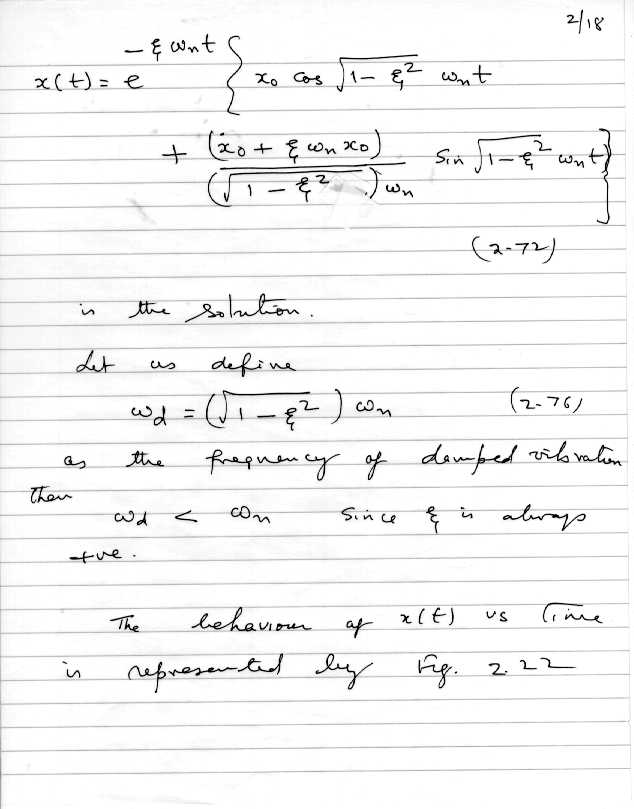 2/18
x(t) = e^{-ξ ωn t} { x0 cos √(1 - ξ²) ωn t
+ (ẋ0 + ξ ωn x0) / (√(1 - ξ²)) ωn sin √(1 - ξ²) ωn t }
(2-72)
is the solution.
Let us define
ωd = (√(1 - ξ²)) ωn (2-76)
as the frequency of damped vibration
Then
ωd < ωn since ξ is always
+ve.
The behaviour of x(t) vs Time
is represented by Fig. 2.22